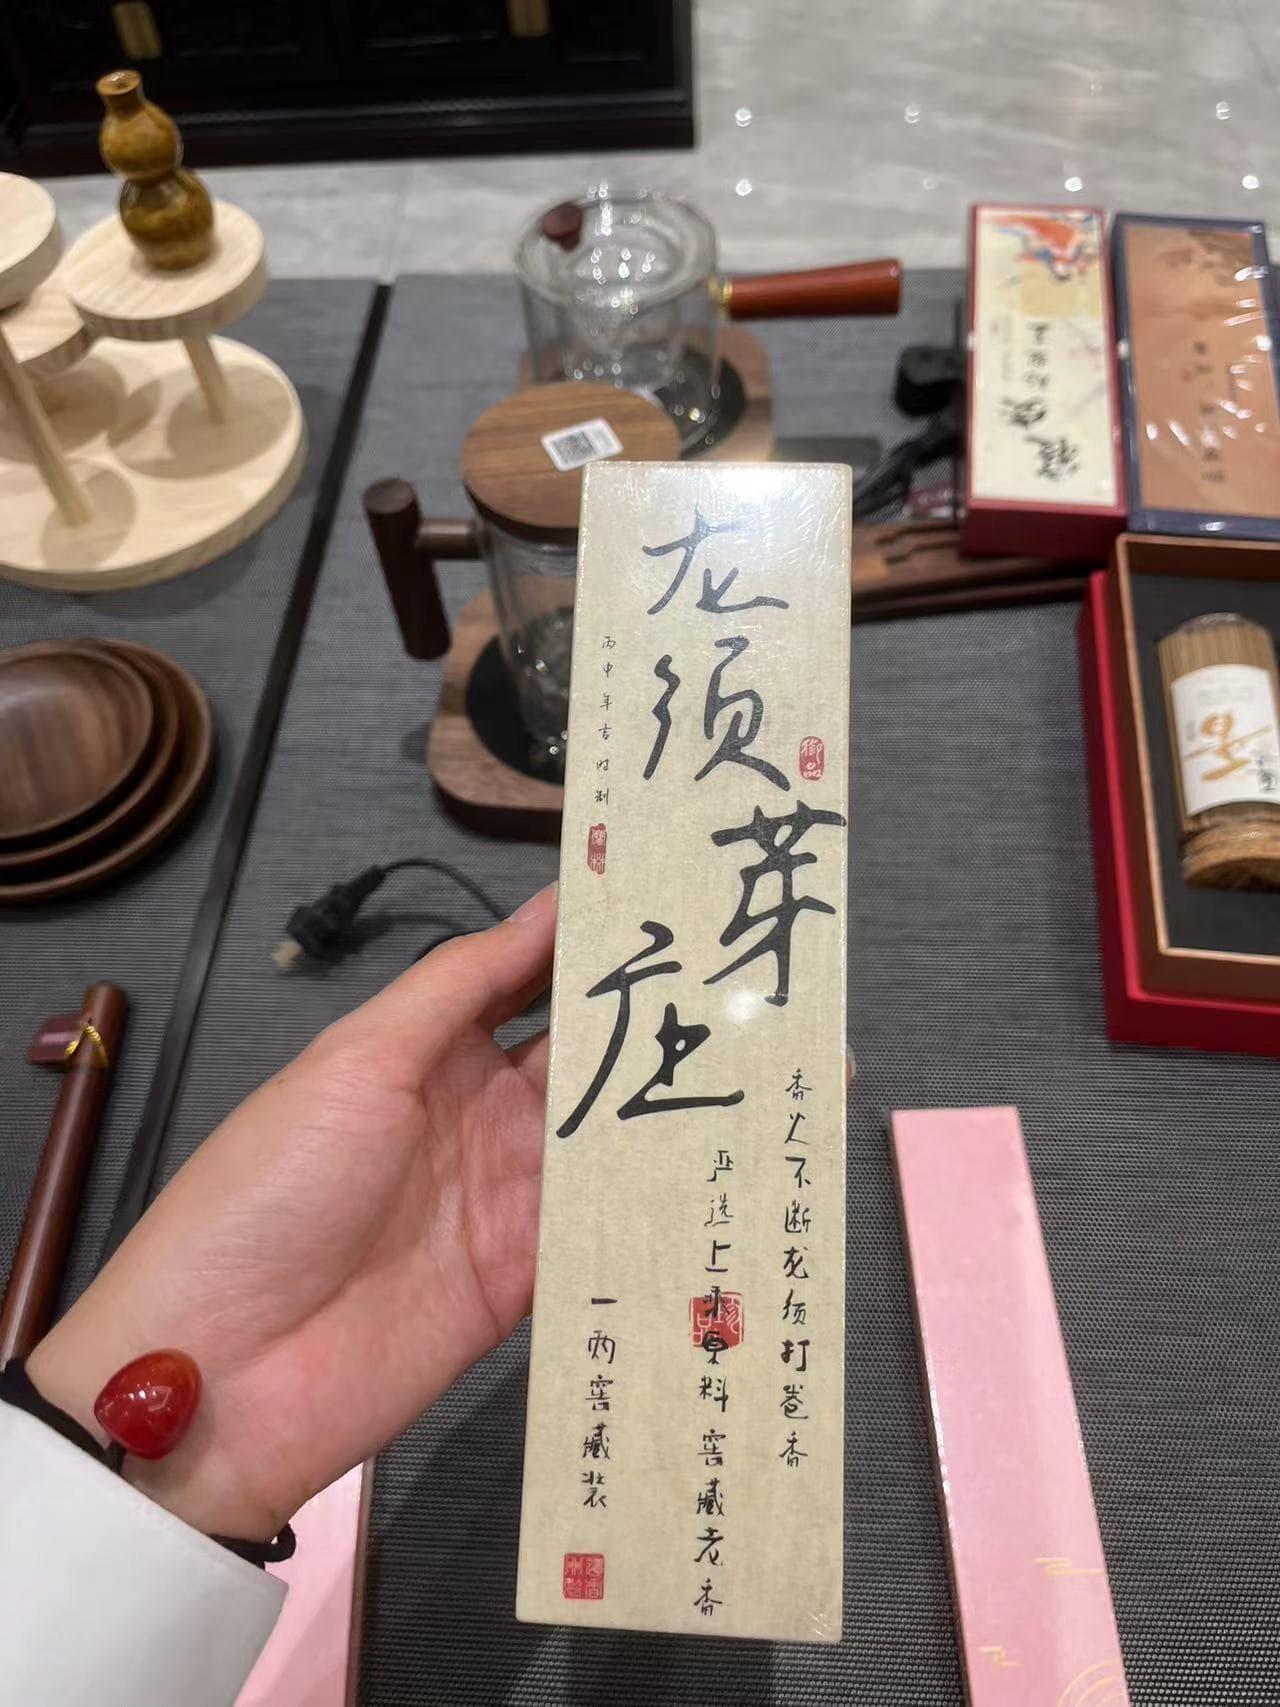 龙须芽庄
丙申年吉时制
御品
香火不断龙须打卷香
严选上乘原料窖藏老香
一两窖藏装